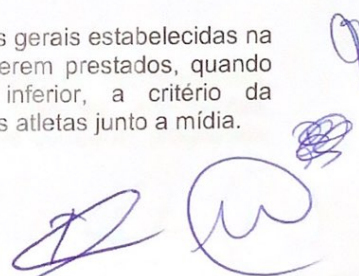 s gerais estabelecidas na
erem prestados, quando
inferior, a critério da
s atletas junto a mídia.